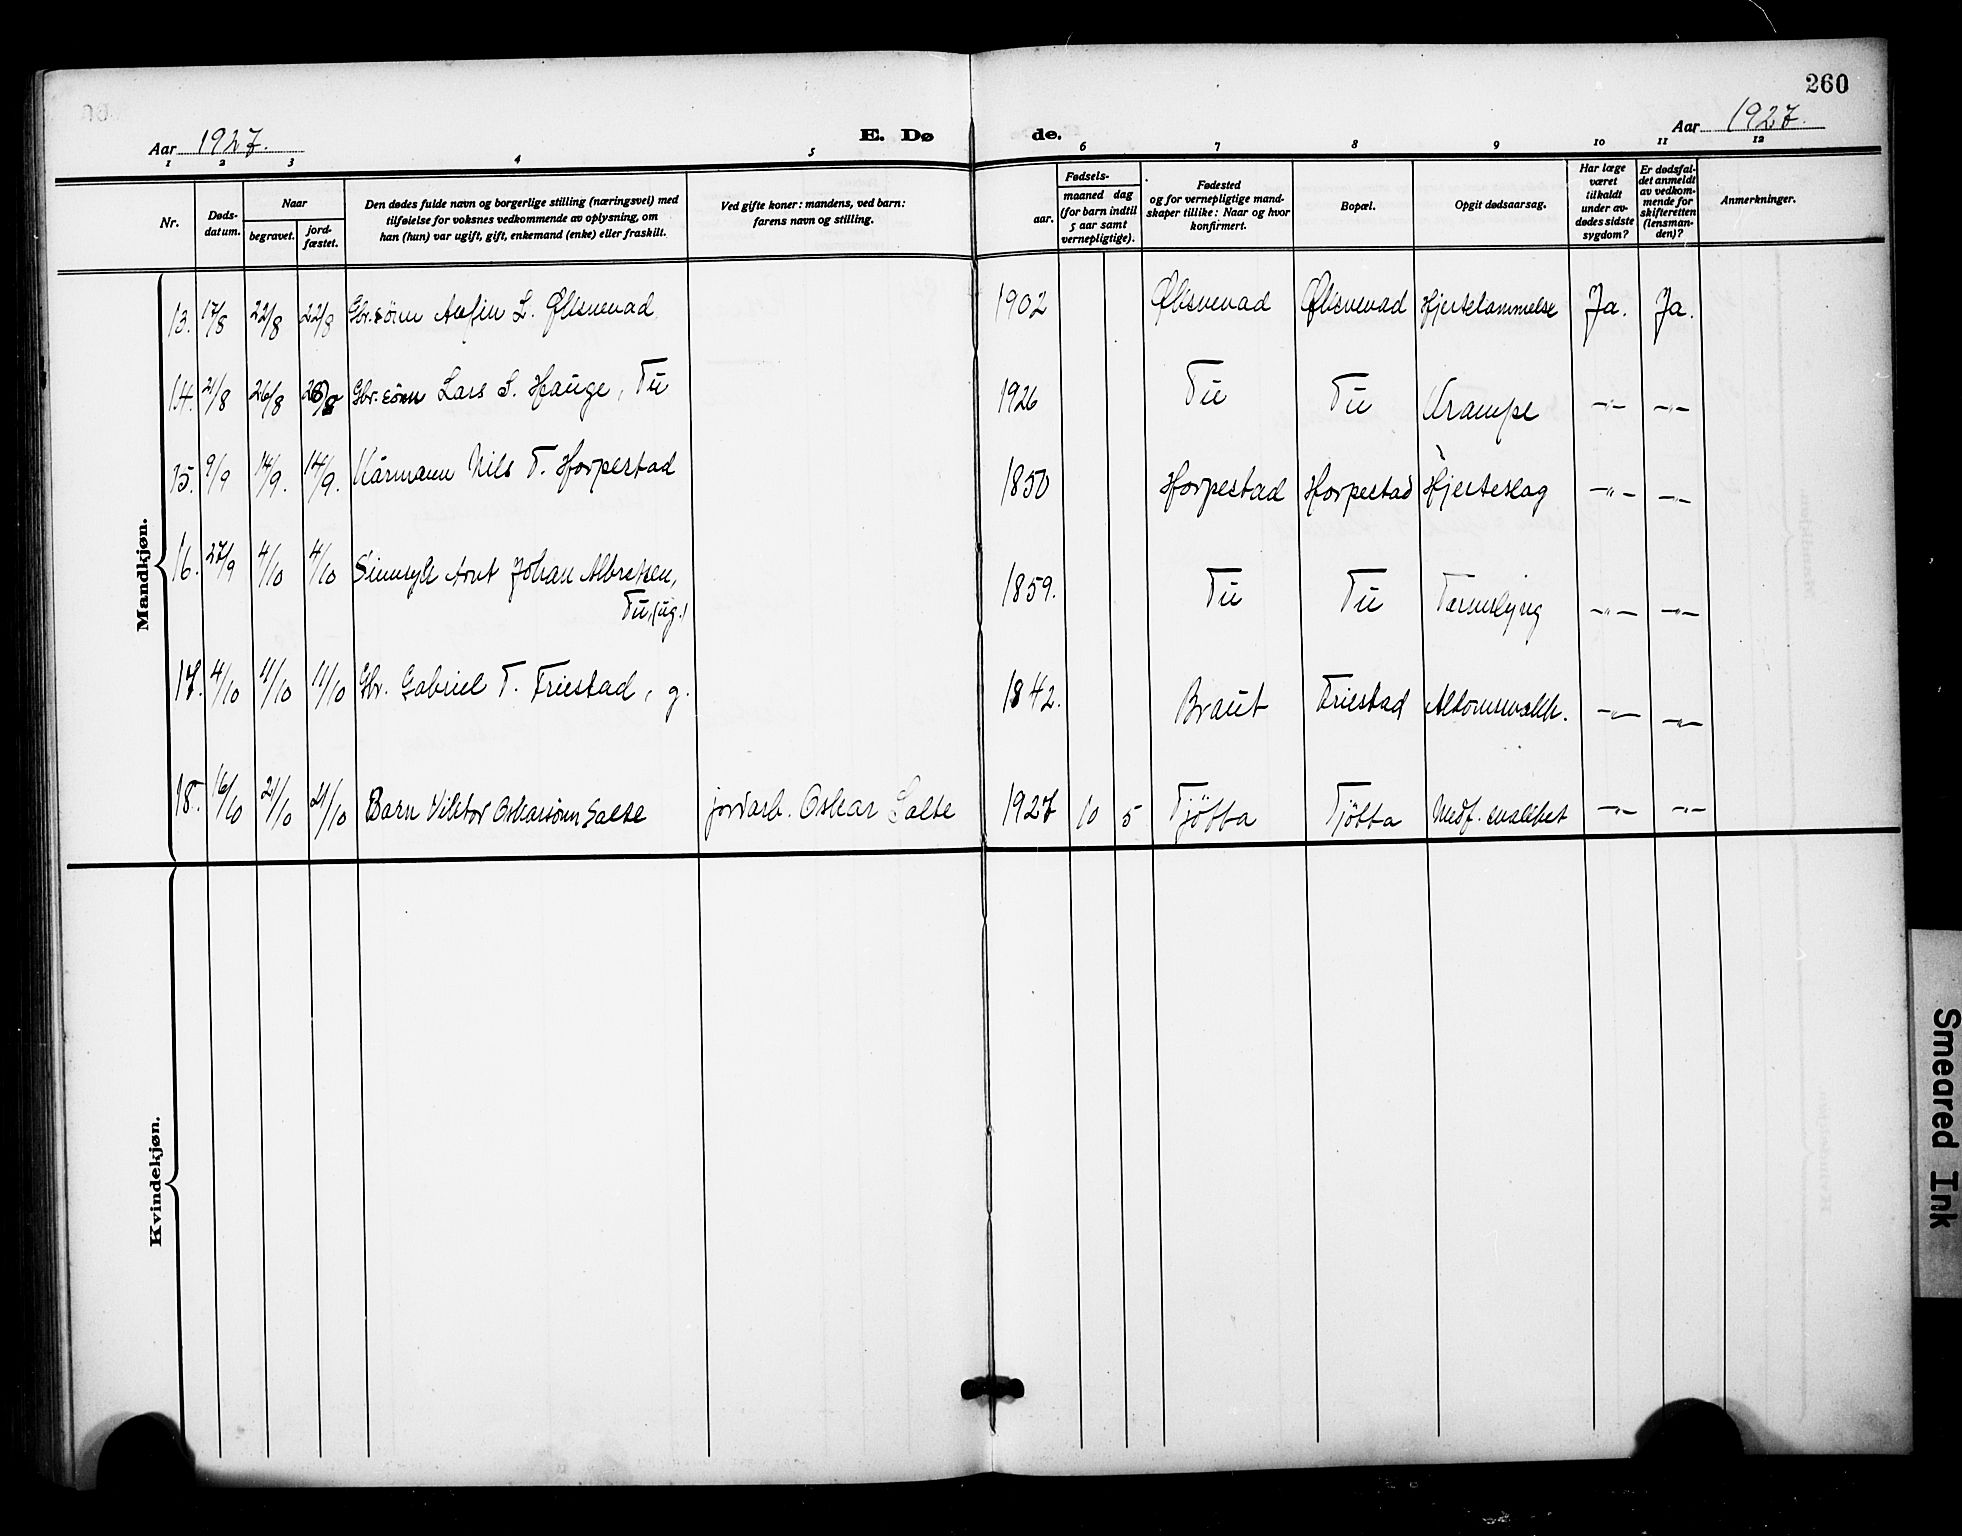 260
Aar 1927.
E. Dø
de.
Aar 1927.
1 2 3 4 5 6 7 8 9 10 11 12
Nr.
Døds-
datum.
Naar
begravet.
jord-
fæstet.
Den dødes fulde navn og borgerlige stilling (næringsvei) med
tilføielse for voksnes vedkommende av oplysning, om
han (hun) var ugift, gift, enkemand (enke) eller fraskilt.
Ved gifte koner: mandens, ved barn:
farens navn og stilling.
Fødsels-
aar.
maaned dag
(for barn indtil
5 aar samt
vernepligtige).
Fødested
og for vernepligtige mand-
skaper tillike: Naar og hvor
konfirmert.
Bopæl.
Opgit dødsaarsag.
Har læge
været
tilkaldt
under av-
dødes sidste
sygdom?
Er dødsfal-
det anmeldt
av vedkom-
mende for
skifteretten
(lensman-
den)?
Anmerkninger.
Mandkjøn.
13. 17/8 22/8 22/8 Gbr.sönn L. 1902 Hjertelammelse Ja. Ja.
14. 21/8 26/8 Gbr.sönn Lars S. Hauge, Tu 1926 Tu Tu Krampe -"- -"-
15. 9/9 14/9. 14/9. Kårmann Nils T. Horpestad 1850 Horpestad Horpestad Hjerteslag -"- -"-
16. 27/9 4/10 4/10 Sinnsyk Arnt Johan Albretsen,
Tu, (ug.) 1859. Tu Tu Tarmslyng -"- -"-
17. 4/10 11/10 11/10 Gbr. Gabriel T. Friestad, g. 1842. Braut Friestad -"- -"-
18. 16/10 21/10 21/10 Barn Viktor Oskarsönn Salte jordarb. Oskar Salte 1927 10 5 Tjötta Tjötta Medf. svakhet -"- -"-
Kvindekjøn.
Smeared Ink